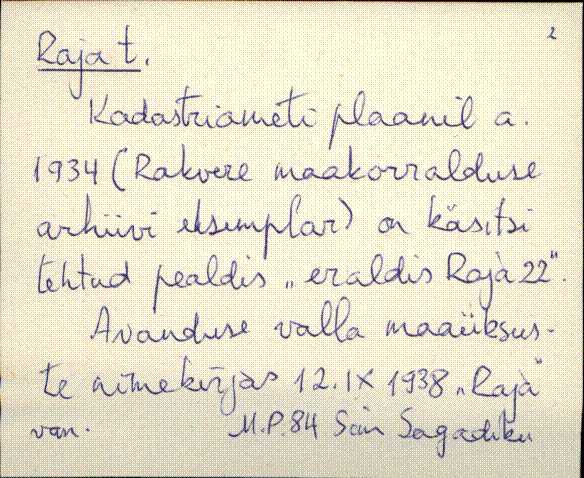 2
Raja t.
Kadastriameti plaanil a.
1934 (Rakvere maakorralduse
arhiivi eksemplar) on käsitsi
tehtud pealdis „eraldis Raja 22".
Avanduse valla maaüksus-
te nimekirjas 12.IX 1938 „Raja"
van. M.P.84 Sagadiku